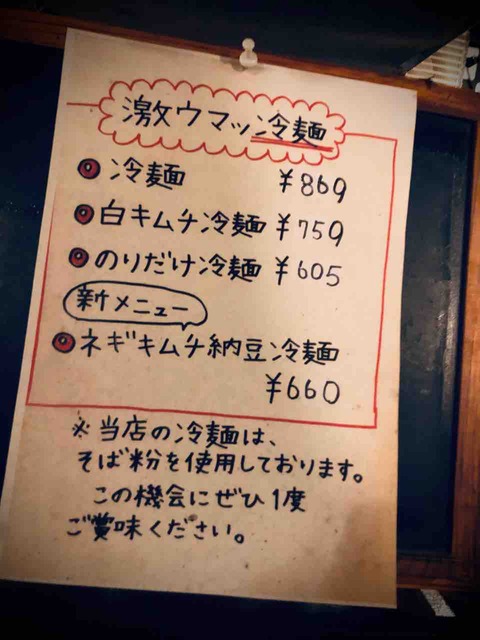 激ウマッ冷麺
冷麺 ¥869
白キムチ冷麺 ¥759
のりだけ冷麺 ¥605
新メニュー
ネギキムチ納豆冷麺
¥660
※当店の冷麺は、
そば粉を使用しております。
この機会にぜひ1度
ご賞味ください。